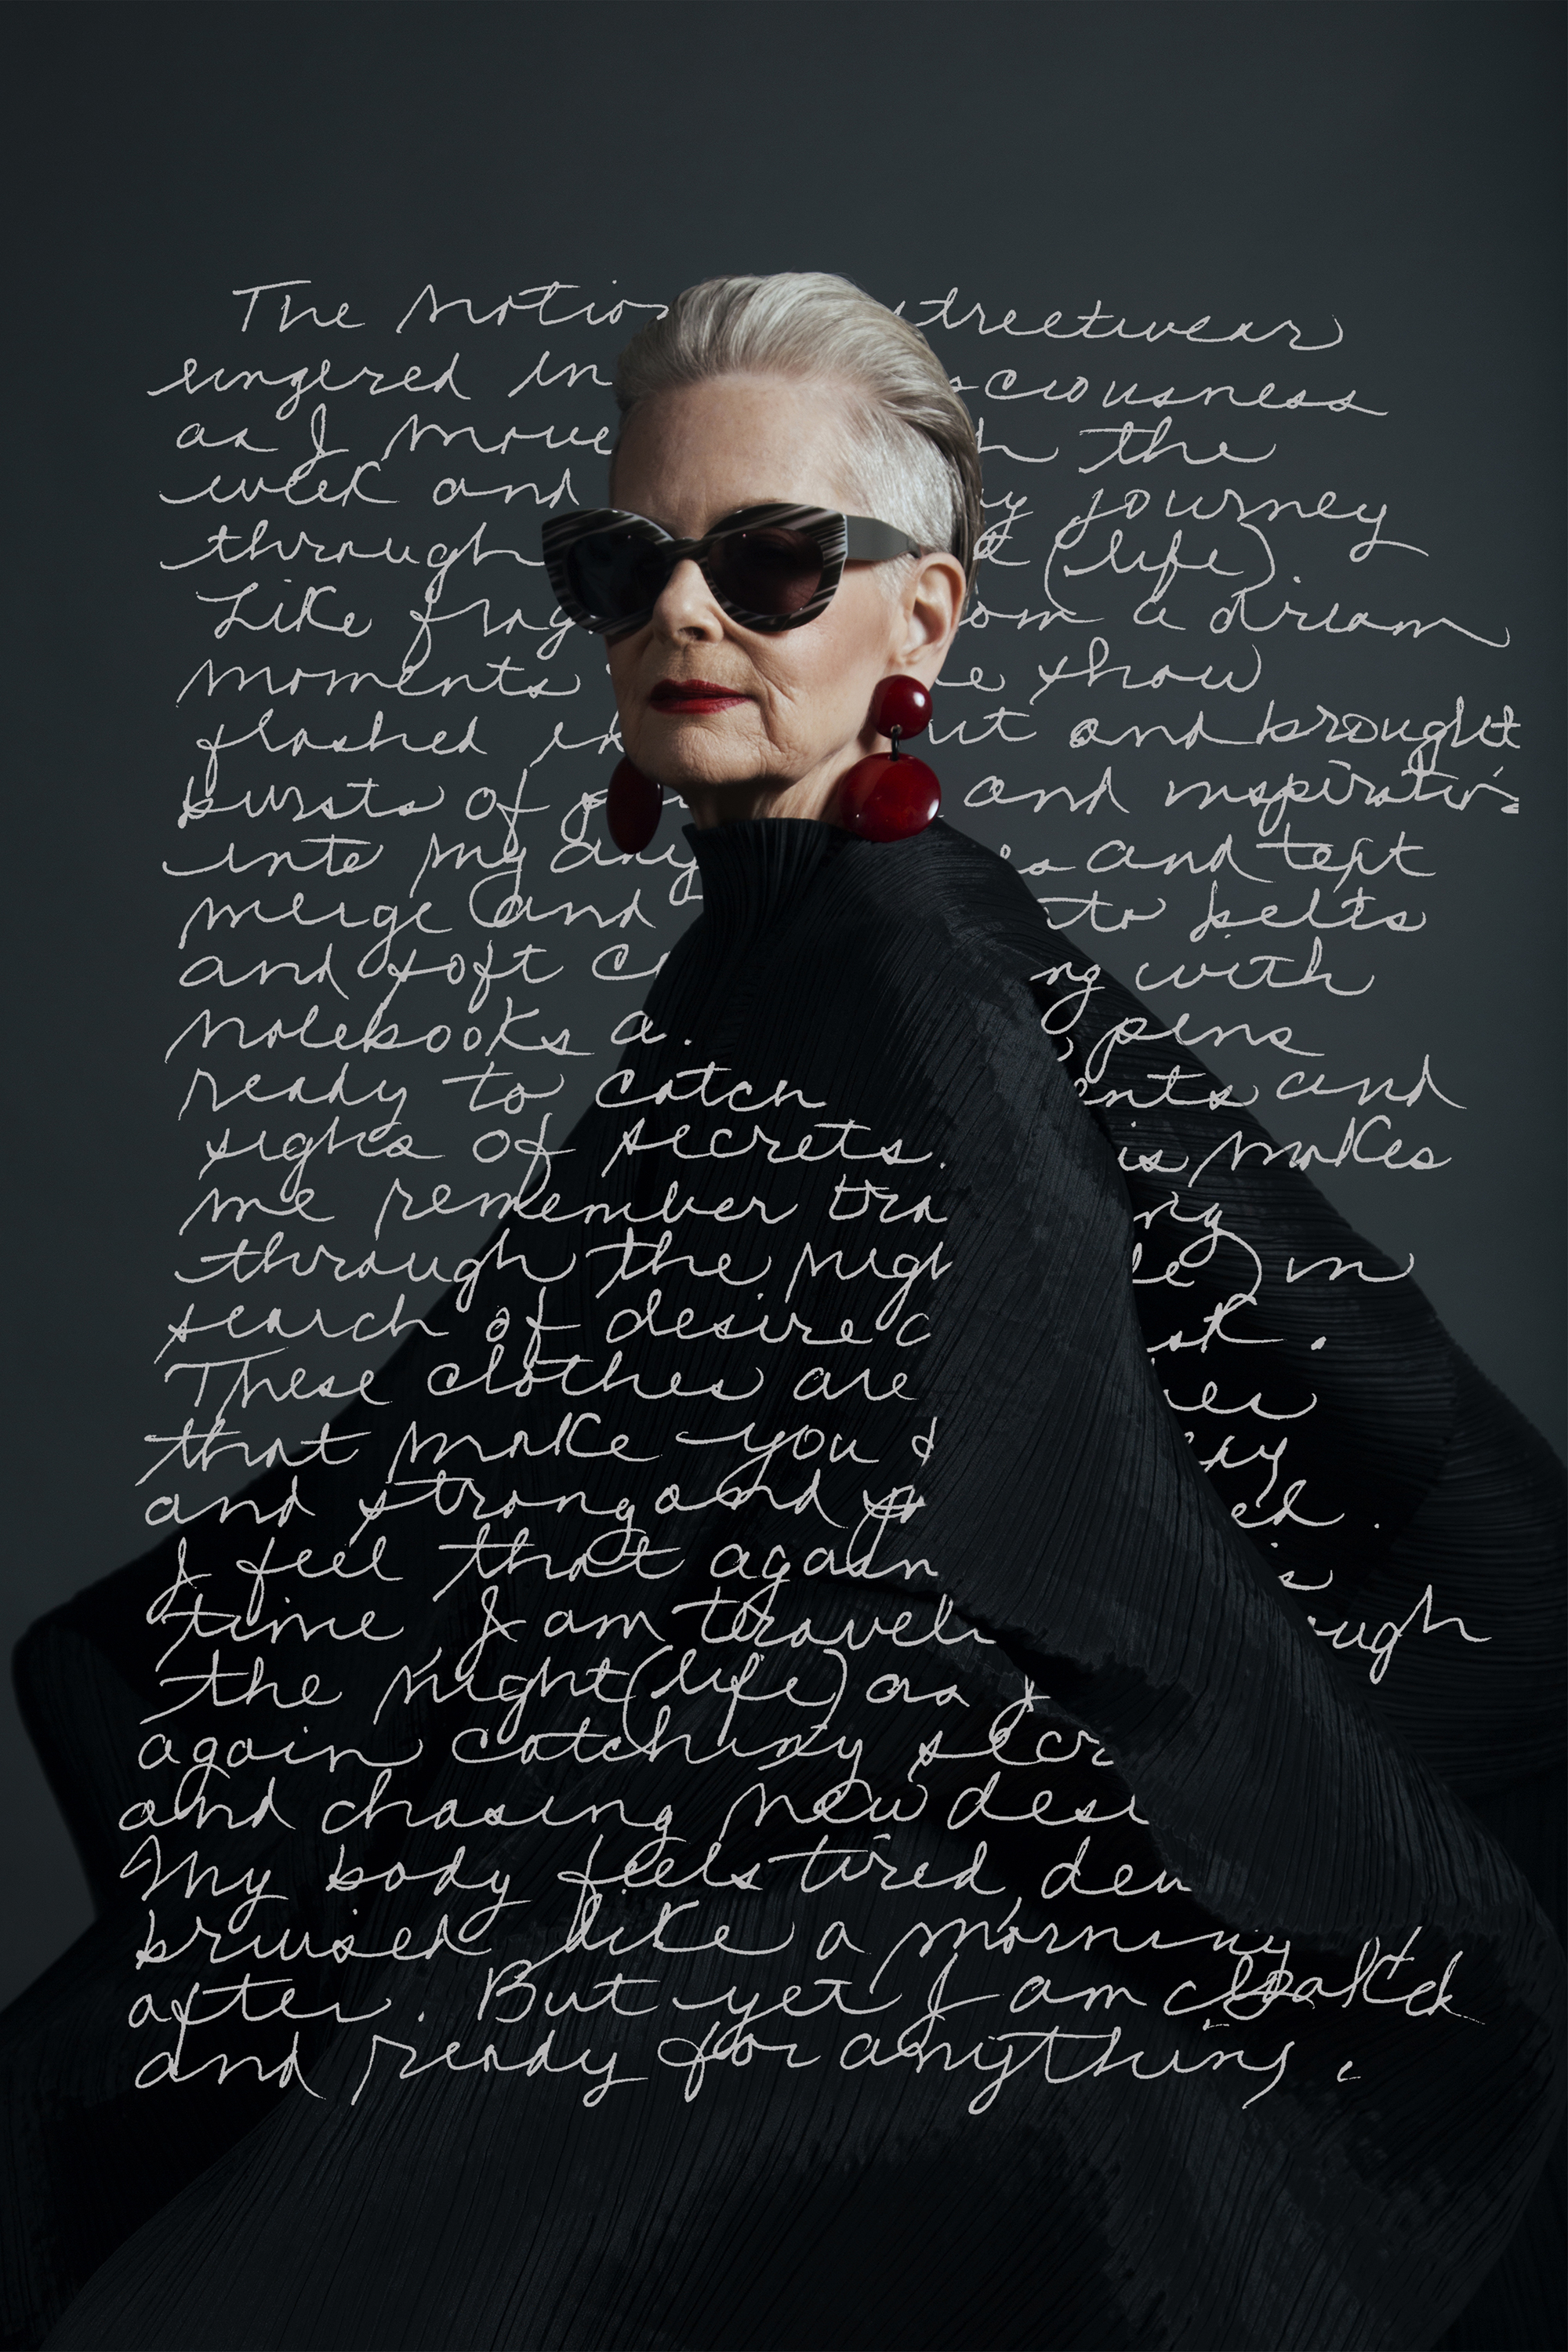 The notion streetwear
lingered in sciousness
as I move h the
week and my journey
through (life).
Like frag om a dream
moments e show
flashed in ut and brought
bursts of and inspiration
into my day es and text
merge and to belts
and soft ng with
notebooks a pens
ready to catch ents and
sighs of secrets. is makes
me remember tra ng
through the nigh le) in
search of desire st.
These clothes are
that make you
and strong and ed.
I feel that again is
time I am traveli ough
the night (life) as I
again catching secr
and chasing new desi
My body feels tired, den
bruised like a morning
after. But yet I am
and ready for anything.